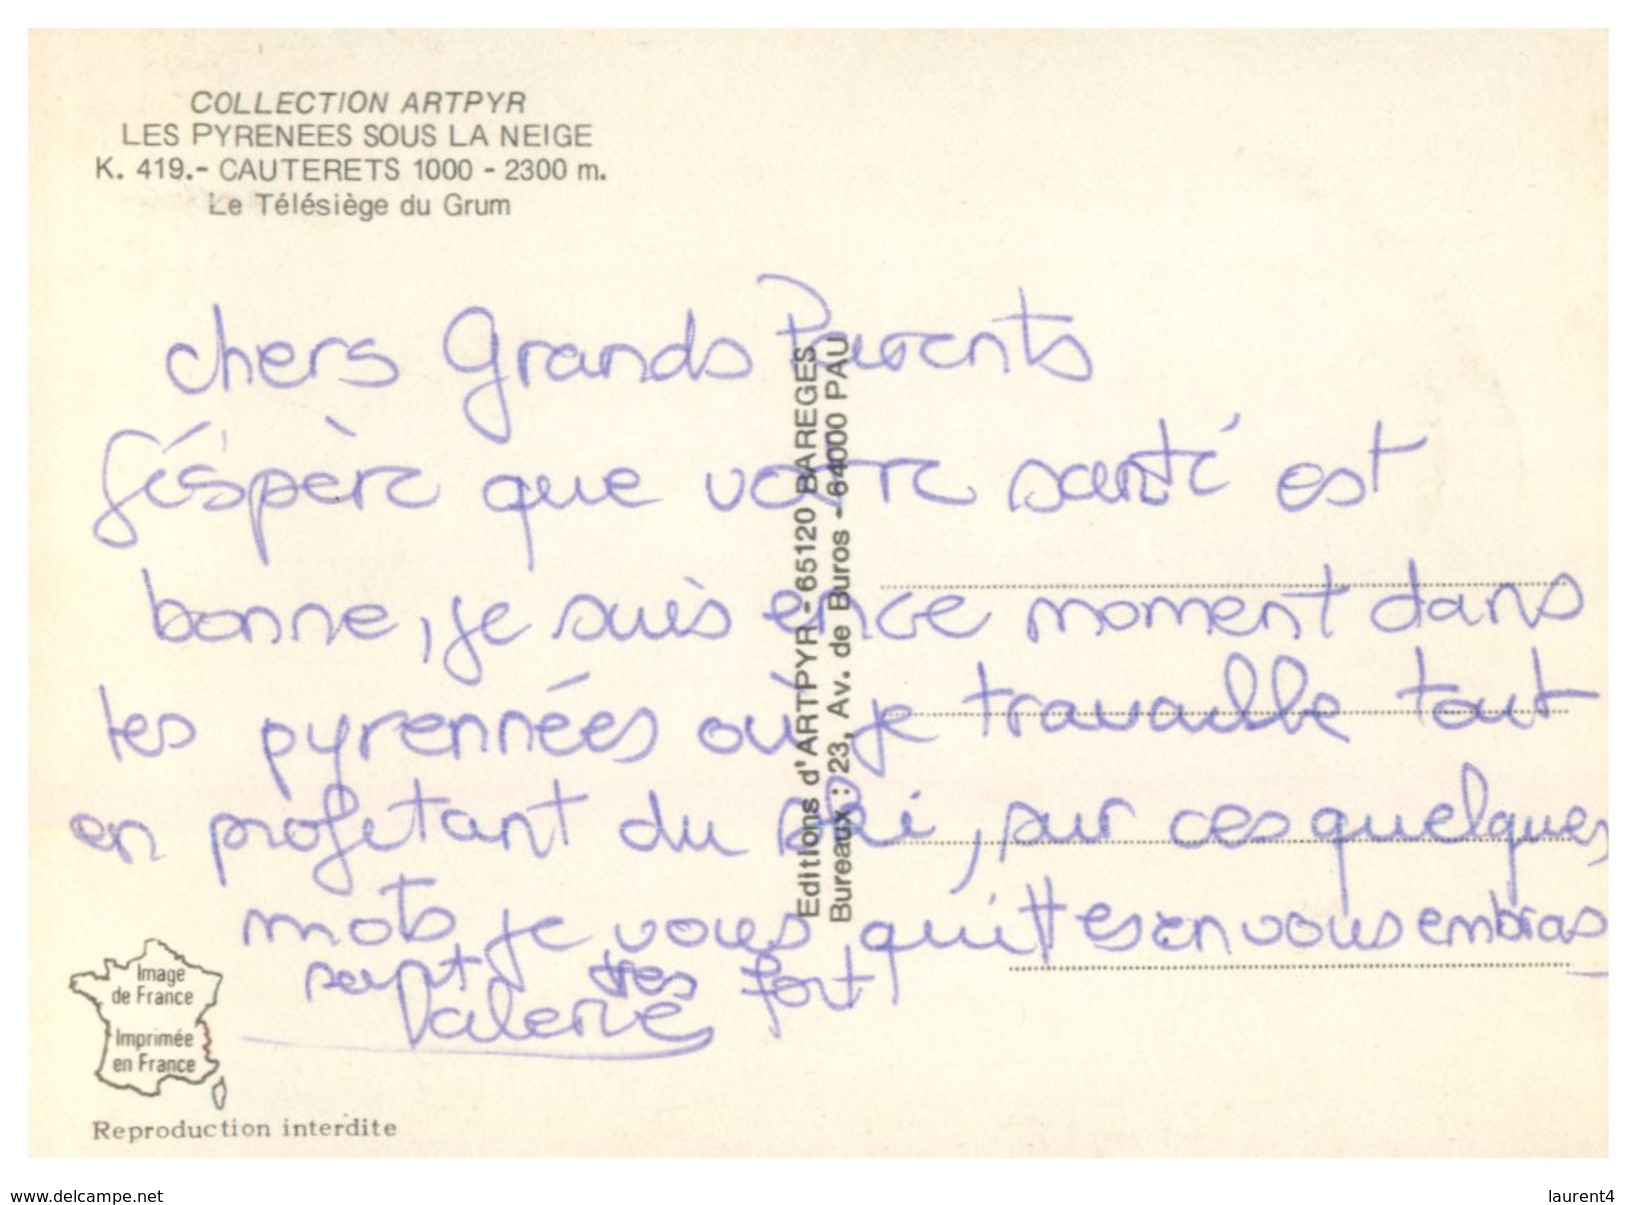 COLLECTION ARTPYR
LES PYRENEES SOUS LA NEIGE
K. 419.- CAUTERETS 1000 - 2300 m.
Le Télésiège du Grum
chers Grands Parents
J'éspère que votre santé est
bonne, je suis ence moment dans
les pyrennées où je travaille tout
en profitant du ski, sur ces quelques
mots je vous quittes en vous embras_
sant très fort
Valerie
Editions d'ARTPYR - 65120 BAREGES
Bureaux : 23, Av. de Buros - 64000 PAU
Image
de France
Imprimée
en France
Reproduction interdite
www.delcampe.net
laurent4